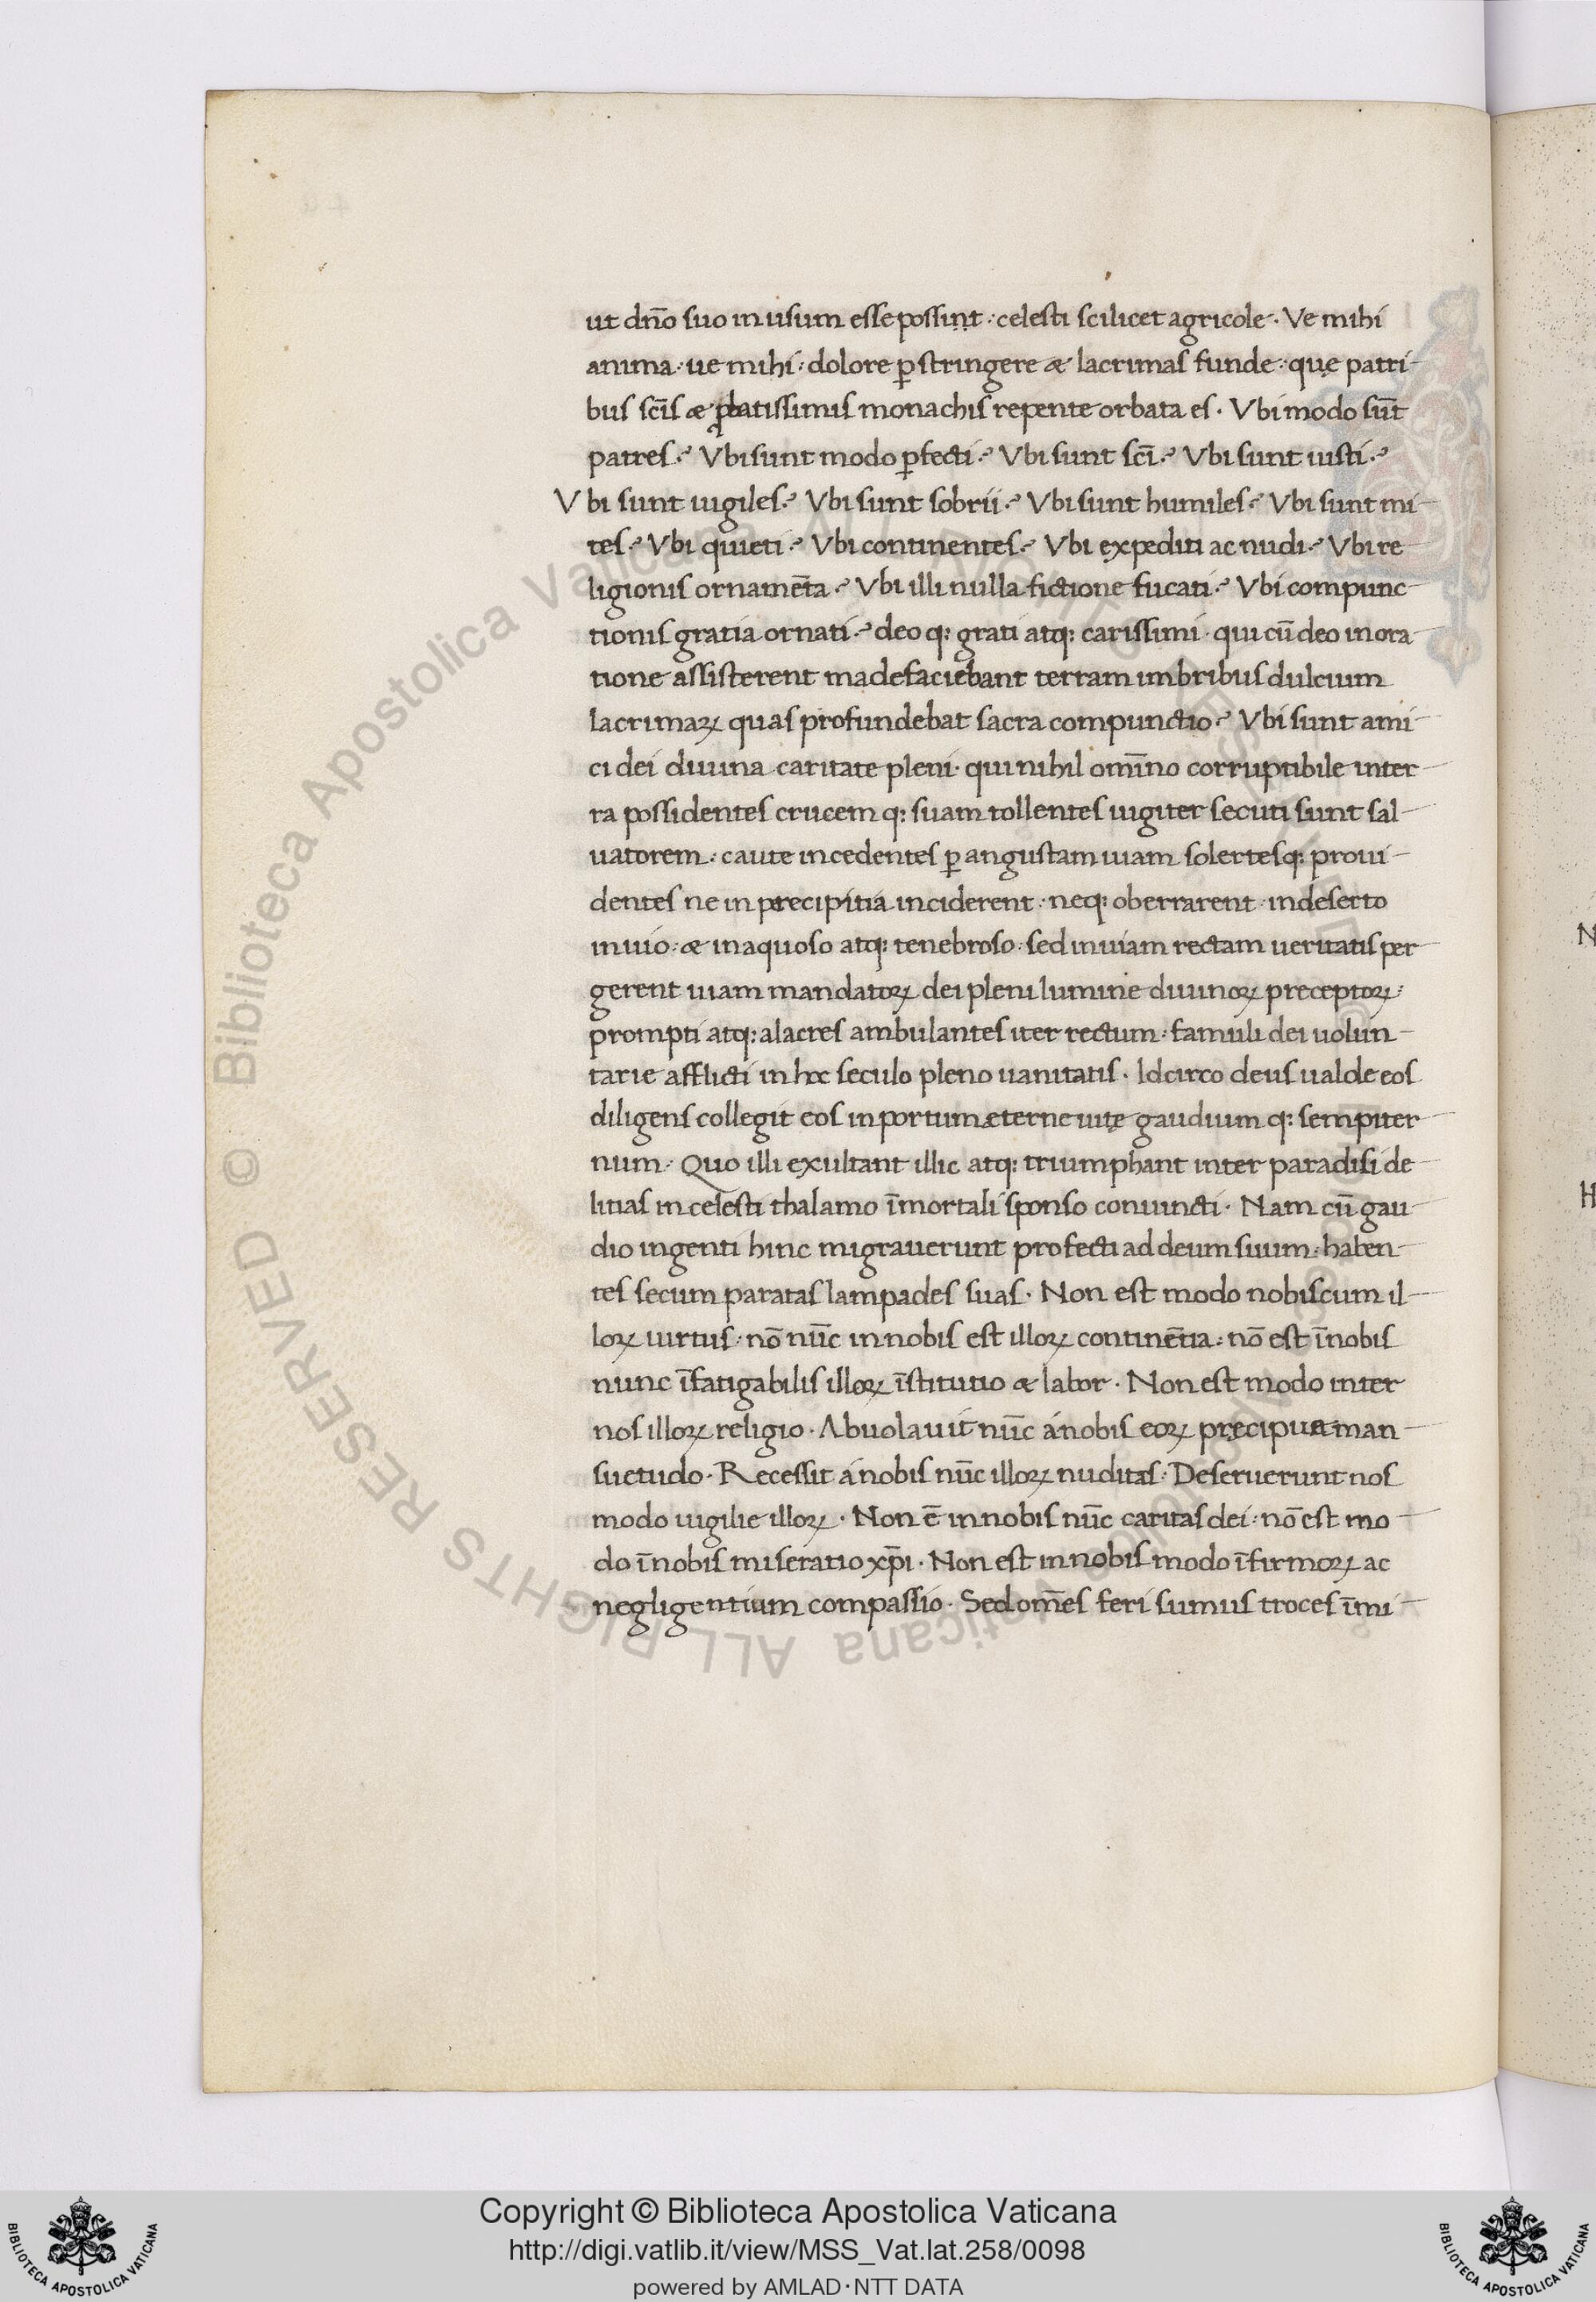 ut dn̄o suo in usum esse possint : celesti scilicet agricole · Ve mihi
anima : ue mihi : dolore ꝑstringere & lacrimas funde : quę patri-
bus sc̄is & ꝓbatissimis monachis repente orbata es · Vbi modo sūt
patres ? Vbi sunt modo ꝑfecti ? Vbi sunt sc̄i ? Vbi sunt iusti ?
Vbi sunt uigiles ? Vbi sunt sobrii ? Vbi sunt humiles ? Vbi sunt mi-
tes ? Vbi quieti ? Vbi continentes ? Vbi expediti ac nudi ? Vbi re
ligionis ornamēta ? Vbi illi nulla fictione fucati ? Vbi compunc-
tionis gratia ornati ? deo q: grati atq: carissimi · qui cū deo in ora-
tione assisterent madefaciebant terram imbribus dulcium
lacrimaꝝ quas profundebat sacra compunctio ? Vbi sunt ami-
ci dei diuina caritate pleni · qui nihil omīno corruptibile in ter-
ra possidentes crucem q: suam tollentes iugiter secuti sunt sal-
uatorem : caute incedentes ꝑ angustam uiam solertesq: proui-
dentes ne in precipitia inciderent : neq: oberrarent : in deserto
inuio : & inaquoso atq: tenebroso : sed in uiam rectam ueritatis per-
gerent uiam mandatoꝝ dei pleni lumine diuinoꝝ preceptoꝝ :
prompti atq: alacres ambulantes iter rectum : famuli dei uolun-
tarie afflicti in hoc seculo pleno uanitatis · Idcirco deus ualde eos
diligens collegit eos in portum æterne uitę gaudium q: sempiter-
num : Quo illi exultant illic atq: triumphant inter paradisi de-
litias in celesti thalamo īmortali sponso coniuncti · Nam cū gau-
dio ingenti hinc migrauerunt profecti ad deum suum : haben-
tes secum paratas lampades suas · Non est modo nobiscum il-
loꝝ uirtus : nō nūc in nobis est illoꝝ continētia : nō est ī nobis
nunc īfatigabilis illoꝝ īstitutio & labor · Non est modo inter
nos illoꝝ religio · Abuolauit nūc á nobis eoꝝ pręcipua man-
suetudo · Recessit á nobis nūc illoꝝ nuditas : Deseruerunt nos
modo uigilie illoꝝ · Non ē in nobis nūc caritas dei : nō est mo-
do ī nobis miseratio xp̄i · Non est in nobis modo īfirmoꝝ ac
negligentium compassio · Sed om̄es feri sumus troces īmi-
Biblioteca Apostolica Vaticana ALL RIGHTS RESERVED ©
Copyright © Biblioteca Apostolica Vaticana
http://digi.vatlib.it/view/MSS_Vat.lat.258/0098
powered by AMLAD·NTT DATA
BIBLIOTECA APOSTOLICA VATICANA
BIBLIOTECA APOSTOLICA VATICANA